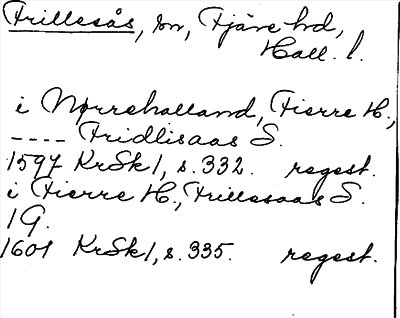 Frillesås, sn, Fjäre hd,
Hall. l.
i Nørrehalland, Fierre H.,
---- Fridlisaas S.
1597 KrSk1, s. 332. regest.
i Fierre H., Frillesaas S.
1 G.
1601 KrSk1, s. 335. regest.